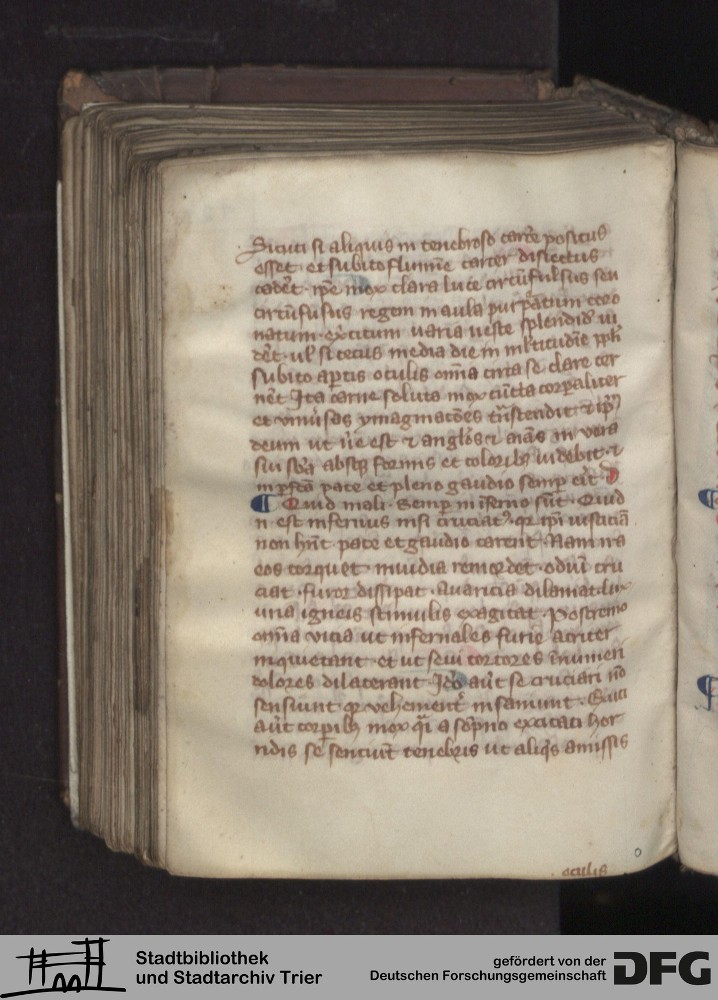 Sicuti si aliquis in tenebroso carc̄e positus
esset · et subito flumīe carcer disiectus
cadet · ip̄e mox clara luce circūfulsus seu
circūfusus regem in aula purp̄atum coro
natum · ex̄citum varia veste splendid᷑ vi
det · ul̕ si cecus media die in ml̕titudīe pp̄li
subito ap̄tis oculis om̄ia circa se clare cer
net Ita carne soluta mox cūcta corp̄aliter
et vniu̕sas ymaginacōes tn̄scendit ⁊ ip̄m̄
deum ut ūe est ⁊ angl̕os ⁊ aīas in vera
sui sb̄a absq̨ formis et coloribꝫ videbit · ⁊
in ꝑfcā pace et pleno gaudio semp̄ erit D
¶ Quid mali · Semp̄ in īferno sūt · Quid
n̄ est infernus nisi cruciat᷒ · qꝛ ip̄i iusticiā
non hn̄t · pace et gaudio carent · Nam ira
eos torquet · inuidia remordet · odiū cru
ciat · furor dissipat · Auaricia dilaniat · lux
uria igneis stimulis exagitat · Postremo
om̄ia vicia ut infernales furie acriter
inquietant · et ut seui tortores īnumeri
dolores dilacerant Ideo aūt se cruciari nō
sensiunt qꝛ vehement᷑ insaniunt · Exuti
aūt corp̄ibꝫ mox qͣi a sōpno excitati hor
ridis se senciūt tenebris ut aliq̄s amissis
oculis
Stadtbibliothek
und Stadtarchiv Trier
gefördert von der
Deutschen Forschungsgemeinschaft
DFG